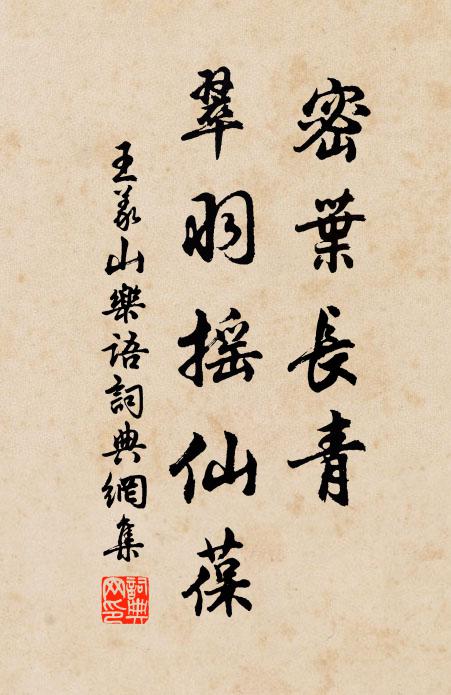 密葉長青
翠羽摇仙葆
王義山樂語詞典網集
詞典网印